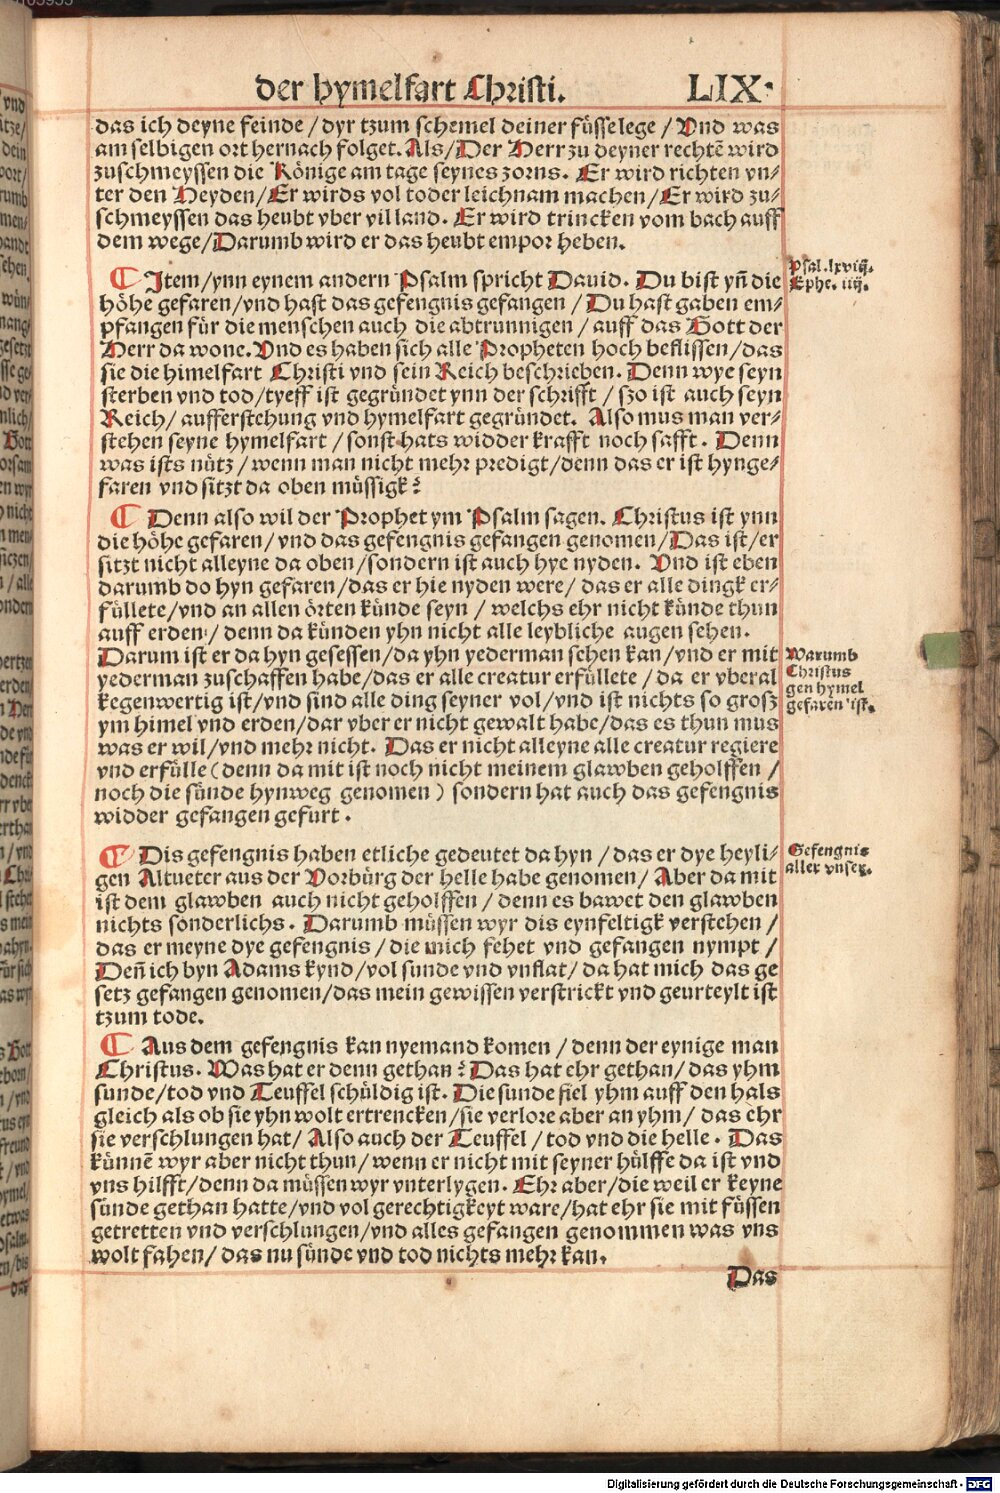 der hymelfart Christi. LIX.
das ich deyne feinde / dyr tzum schemel deiner füsse lege / Vnd was
am selbigen ort hernach folget. Als / Der Herr zu deyner rechtẽ wird
zuschmeyssen die Könige am tage seynes zorns. Er wird richten vn⸗
ter den Heyden / Er wirds vol toder leichnam machen / Er wird zu⸗
schmeyssen das heubt vber vil land. Er wird trincken vom bach auff
dem wege / Darumb wird er das heubt empor heben.
Psal. lxviij.
Ephe. iiij.
¶ Item / ynn eynem andern Psalm spricht Dauid. Du bist yñ die
höhe gefaren / vnd hast das gefengnis gefangen / Du hast gaben em⸗
pfangen für die menschen auch die abtrunnigen / auff das Gott der
Herr da wone. Vnd es haben sich alle Propheten hoch beflissen / das
sie die himelfart Christi vnd sein Reich beschrieben. Denn wye seyn
sterben vnd tod / tyeff ist gegründet ynn der schrifft / szo ist auch seyn
Reich / aufferstehung vnd hymelfart gegründet. Also mus man ver⸗
stehen seyne hymelfart / sonst hats widder krafft noch safft. Denn
was ists nütz / wenn man nicht mehr predigt / denn das er ist hynge⸗
faren vnd sitzt da oben müssigk?
¶ Denn also wil der Prophet ym Psalm sagen. Christus ist ynn
die höhe gefaren / vnd das gefengnis gefangen genomen / Das ist / er
sitzt nicht alleyne da oben / sondern ist auch hye nyden. Vnd ist eben
darumb do hyn gefaren / das er hie nyden were / das er alle dingk er⸗
füllete / vnd an allen örten künde seyn / welchs ehr nicht künde thun
auff erden / denn da künden yhn nicht alle leybliche augen sehen.
Darum ist er da hyn gesessen / da yhn yederman sehen kan / vnd er mit
yederman zuschaffen habe / das er alle creatur erfüllete / da er vberal
kegenwertig ist / vnd sind alle ding seyner vol / vnd ist nichts so grosz
ym himel vnd erden / dar vber er nicht gewalt habe / das es thun mus
was er wil / vnd mehr nicht. Das er nicht alleyne alle creatur regiere
vnd erfülle (denn da mit ist noch nicht meinem glawben geholffen /
noch die sünde hynweg genomen) sondern hat auch das gefengnis
widder gefangen gefurt.
Warumb
Christus
gen hymel
gefaren ist.
¶ Dis gefengnis haben etliche gedeutet da hyn / das er dye heyli⸗
gen Altueter aus der Vorbürg der helle habe genomen / Aber da mit
ist dem glawben auch nicht geholffen / denn es bawet den glawben
nichts sonderlichs. Darumb müssen wyr dis eynfeltigk verstehen /
das er meyne dye gefengnis / die mich fehet vnd gefangen nympt /
Deñ ich byn Adams kynd / vol sunde vnd vnflat / da hat mich das ge
setz gefangen genomen / das mein gewissen verstrickt vnd geurteylt ist
tzum tode.
Gefengnis
aller vnser.
¶ Aus dem gefengnis kan nyemand komen / denn der eynige man
Christus. Was hat er denn gethan? Das hat ehr gethan / das yhm
sunde / tod vnd Teuffel schüldig ist. Die sunde fiel yhm auff den hals
gleich als ob sie yhn wolt ertrencken / sie verlore aber an yhm / das ehr
sie verschlungen hat / Also auch der Teuffel / tod vnd die helle. Das
künnẽ wyr aber nicht thun / wenn er nicht mit seyner hülffe da ist vnd
vns hilfft / denn da müssen wyr vnterlygen. Ehr aber / die weil er keyne
sünde gethan hatte / vnd vol gerechtigkeyt ware / hat ehr sie mit füssen
getretten vnd verschlungen / vnd alles gefangen genommen was vns
wolt fahen / das nu sünde vnd tod nichts mehr kan.
Das
Digitalisierung gefördert durch die Deutsche Forschungsgemeinschaft - DFG